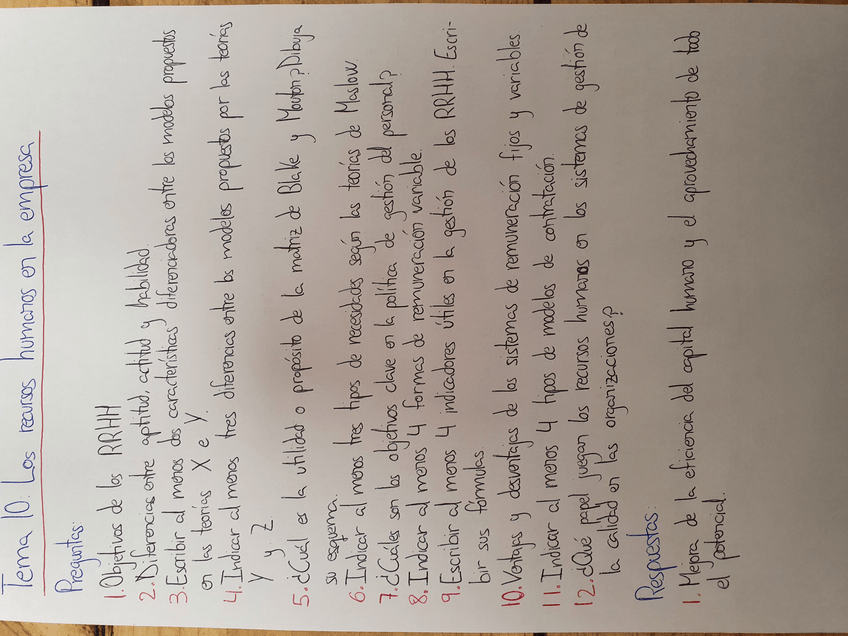 Tema 10. Los recursos humanos en la empresa
Preguntas:
1. Objetivos de los RRHH
2. Diferencias entre aptitud, actitud y habilidad.
3. Escribir al menos dos características diferenciadoras entre los modelos propuestos
en las teorías X e Y.
4. Indicar al menos tres diferencias entre los modelos propuestos por las teorías
Y y Z
5. ¿Cuál es la utilidad o propósito de la matriz de Blake y Mouton? Dibuja
su esquema.
6. Indicar al menos tres tipos de necesidades según las teorías de Maslow
7. ¿Cuáles son los objetivos clave en la política de gestión del personal?
8. Indicar al menos 4 formas de remuneración variable.
9. Escribir al menos 4 indicadores útiles en la gestión de los RRHH. Escri-
bir sus fórmulas.
10. Ventajas y desventajas de los sistemas de remuneración fijos y variables
11. Indicar al menos 4 tipos de modelos de contratación.
12. ¿Qué papel juegan los recursos humanos en los sistemas de gestión de
la calidad en las organizaciones?
Respuestas:
1. Mejora de la eficiencia del capital humano y el aprovechamiento de todo
el potencial.